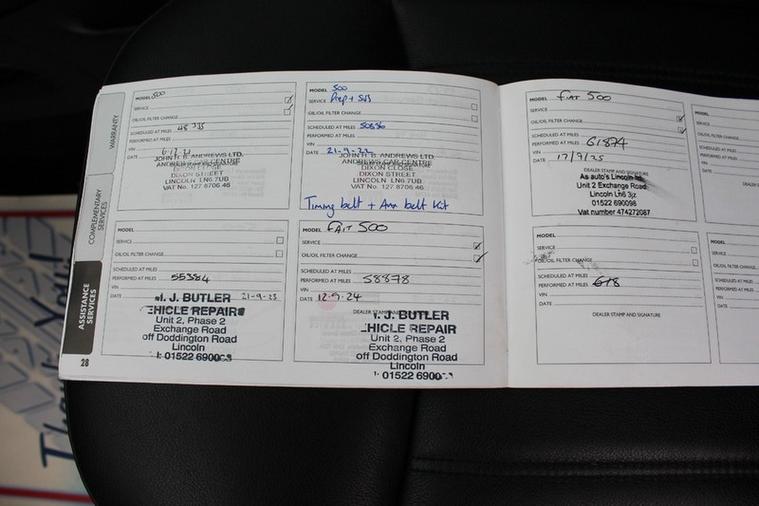 WARRANTY
COMPLEMENTARY
SERVICES
ASSISTANCE
SERVICES
28
MODEL 500
SERVICE
OIL/OIL FILTER CHANGE
SCHEDULED AT MILES
PERFORMED AT MILES
VIN
DATE
JOHN R.B. ANDREWS LTD.
ANDREWS CAR CENTRE
DIXON CLOSE
DIXON STREET
LINCOLN LN6 7UB
VAT No. 127 8706 46
MODEL 500
SERVICE
OIL/OIL FILTER CHANGE
SCHEDULED AT MILES 50886
PERFORMED AT MILES
VIN
DATE 21-9-22
JOHN R.B. ANDREWS LTD.
ANDREWS CAR CENTRE
DIXON CLOSE
DIXON STREET
LINCOLN LN6 7UB
VAT No. 127 8706 46
Timing belt + Aux belt kit
MODEL
SERVICE
OIL/OIL FILTER CHANGE
SCHEDULED AT MILES
PERFORMED AT MILES 55384
VIN
DATE 21-9-23
J. BUTLER
VEHICLE REPAIRS
Unit 2, Phase 2
Exchange Road
off Doddington Road
Lincoln
MODEL FAIT 500
SERVICE
OIL/OIL FILTER CHANGE
SCHEDULED AT MILES
PERFORMED AT MILES 58878
VIN
DATE 12.9.24
DEALER STAMP AND SIGNATURE
J. BUTLER
VEHICLE REPAIR
Unit 2, Phase 2
Exchange Road
off Doddington Road
Lincoln
MODEL FIAT 500
SERVICE
OIL/OIL FILTER CHANGE
SCHEDULED AT MILES
PERFORMED AT MILES 61874
VIN
DATE 17/9/25
DEALER STAMP AND SIGNATURE
As auto's Lincoln ltd
Unit 2 Exchange Road
Lincoln Ln6 3jz
01522 690098
Vat number 474272087
MODEL
SERVICE
OIL/OIL FILTER CHANGE
SCHEDULED AT MILES
PERFORMED AT MILES 618
VIN
DATE
DEALER STAMP AND SIGNATURE
MODEL
SERVICE
OIL/OIL FILTER
SCHEDULED AT MILES
PERFORMED AT MILES
VIN
DATE
MODEL
SERVICE
OIL/OIL FILTER
SCHEDULED AT MILES
PERFORMED AT MILES
VIN
DATE
Thank You